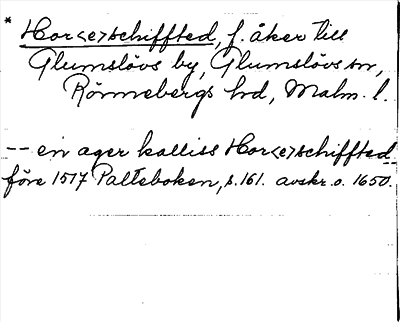 * Hor<e>schiffted, f. åker till
Glumslövs by, Glumslövs sn,
Rönnebergs hd, Malm. l.
-- en ager kalliss Hor<e>schiffted
före 1517 Palteboken, s. 161. avskr. o. 1650.